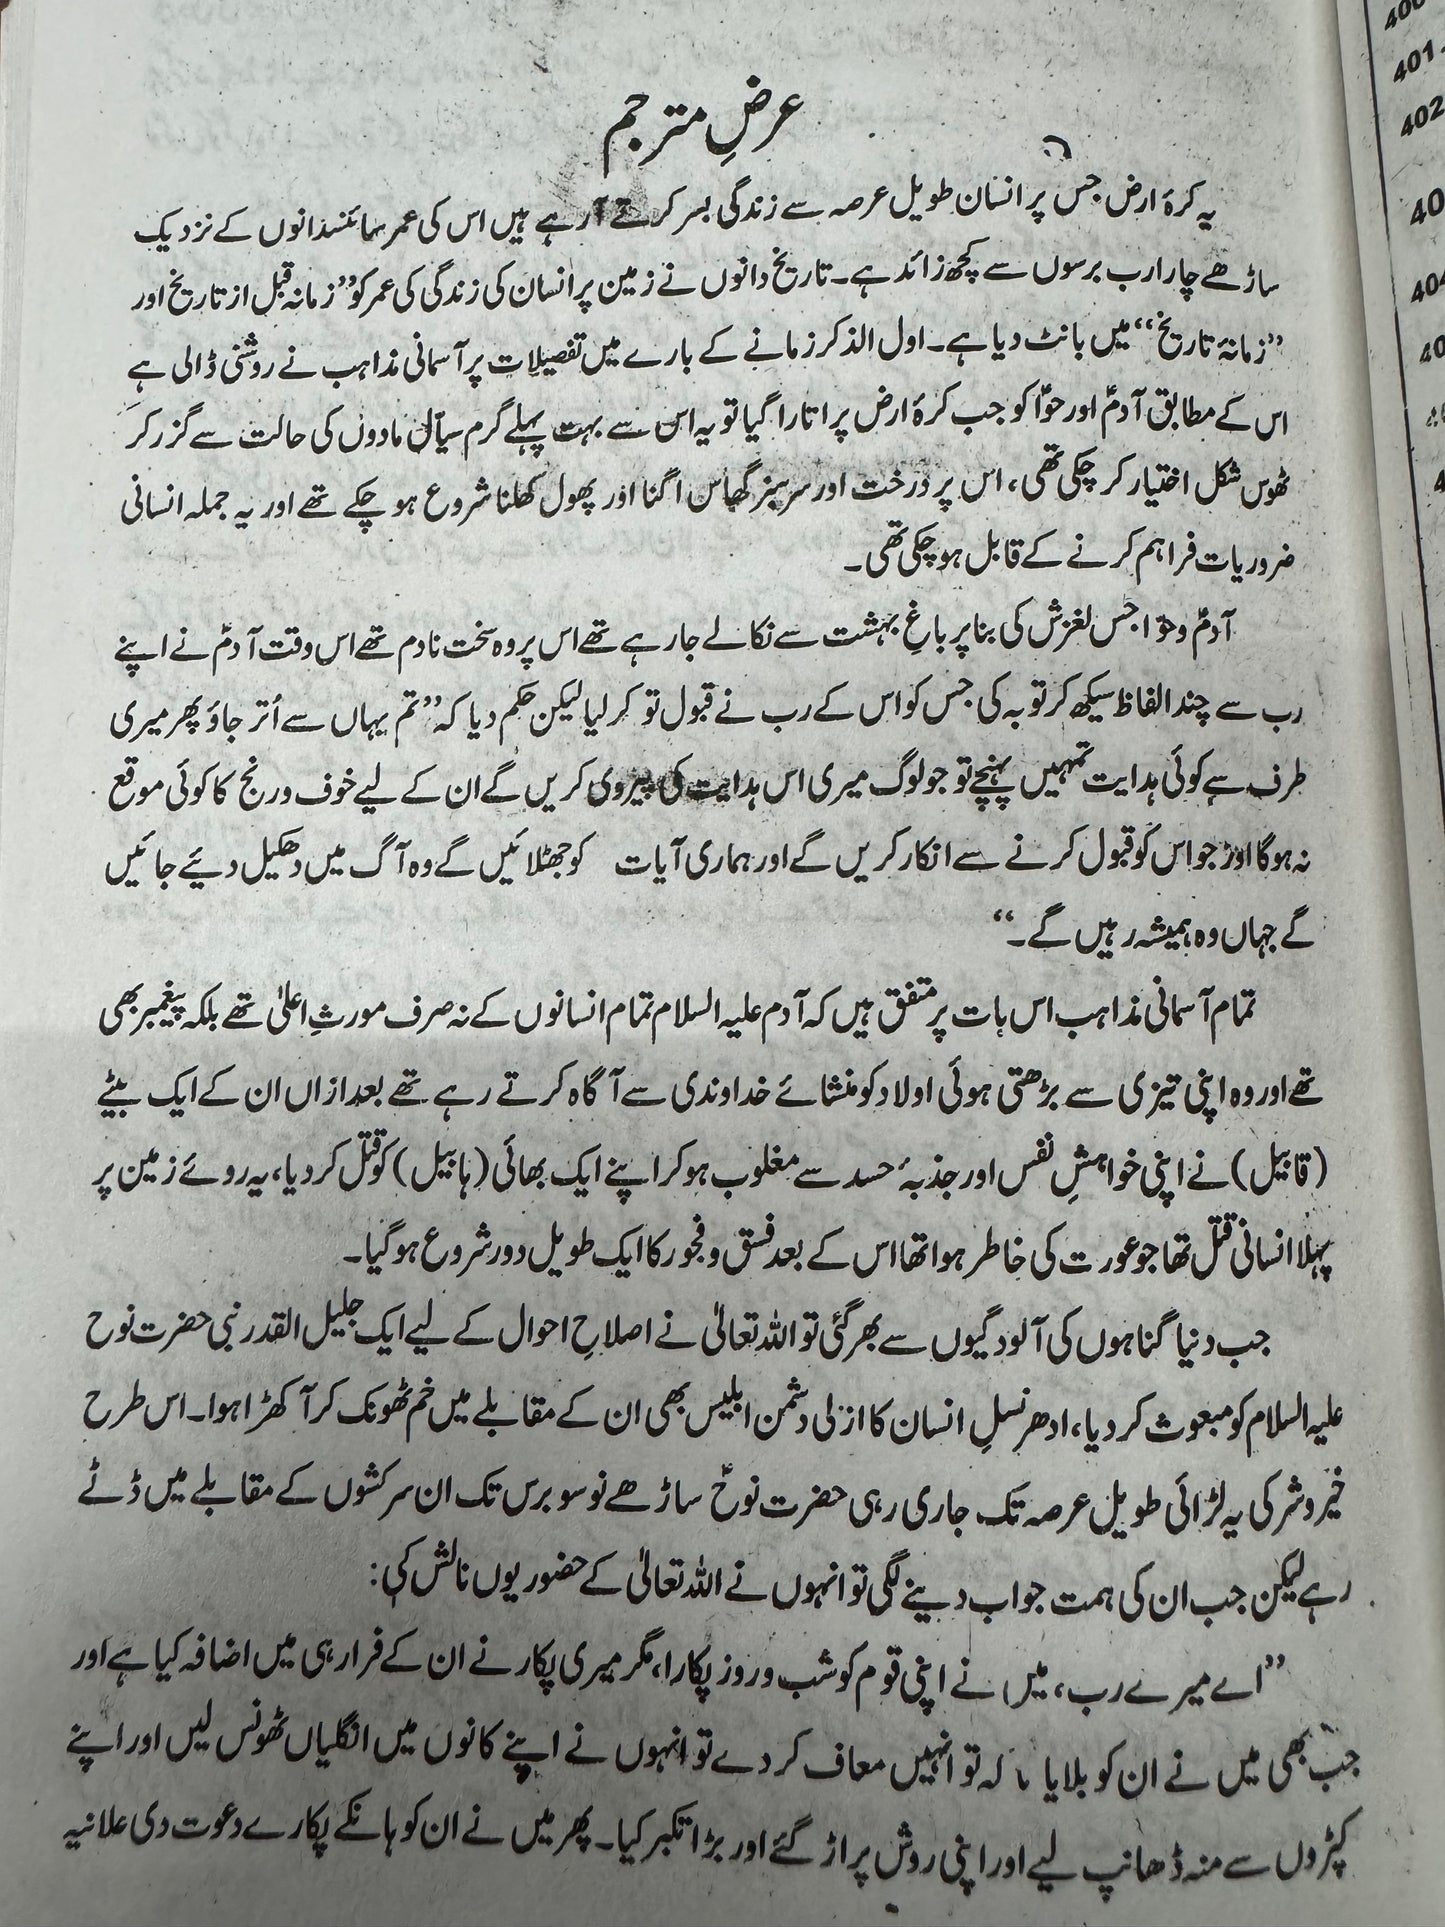 عرضِ مترجم
یہ کرۂ ارض جس پر انسان طویل عرصہ سے زندگی بسر کرتے آ رہے ہیں اس کی عمر سائنسدانوں کے نزدیک
ساڑھے چار ارب برسوں سے کچھ زائد ہے۔ تاریخ دانوں نے زمین پر انسان کی زندگی کی عمر کو ”زمانہ قبل از تاریخ اور
”زمانۂ تاریخ“ میں بانٹ دیا ہے۔ اول الذکر زمانے کے بارے میں تفصیلات پر آسمانی مذاہب نے روشنی ڈالی ہے
اس کے مطابق آدمؑ اور حوّا کو جب کرۂ ارض پر اتارا گیا تو یہ اس سے بہت پہلے گرم سیّال مادوں کی حالت سے گزر کر
ٹھوس شکل اختیار کر چکی تھی، اس پر درخت اور سرسبز گھاس اگنا اور پھول کھلنا شروع ہو چکے تھے اور یہ جملہ انسانی
ضروریات فراہم کرنے کے قابل ہو چکی تھی۔
آدمؑ و حوّا جس لغزش کی بنا پر باغِ بہشت سے نکالے جا رہے تھے اس پر وہ سخت نادم تھے اس وقت آدمؑ نے اپنے
رب سے چند الفاظ سیکھ کر توبہ کی جس کو اس کے رب نے قبول تو کر لیا لیکن حکم دیا کہ ”تم یہاں سے اُتر جاؤ پھر میری
طرف سے کوئی ہدایت تمہیں پہنچے تو جو لوگ میری اس ہدایت کی پیروی کریں گے ان کے لیے خوف و رنج کا کوئی موقع
نہ ہو گا اور جو اس کو قبول کرنے سے انکار کریں گے اور ہماری آیات کو جھٹلائیں گے وہ آگ میں دھکیل دئیے جائیں
گے جہاں وہ ہمیشہ رہیں گے۔“
تمام آسمانی مذاہب اس بات پر متفق ہیں کہ آدم علیہ السلام تمام انسانوں کے نہ صرف مورثِ اعلیٰ تھے بلکہ پیغمبر بھی
تھے اور وہ اپنی تیزی سے بڑھتی ہوئی اولاد کو منشائے خداوندی سے آگاہ کرتے رہے تھے بعد ازاں ان کے ایک بیٹے
(قابیل) نے اپنی خواہشِ نفس اور جذبۂ حسد سے مغلوب ہو کر اپنے ایک بھائی (ہابیل) کو قتل کر دیا، یہ روئے زمین پر
پہلا انسانی قتل تھا جو عورت کی خاطر ہوا تھا اس کے بعد فسق و فجور کا ایک طویل دور شروع ہو گیا۔
جب دنیا گناہوں کی آلودگیوں سے بھر گئی تو اللہ تعالیٰ نے اصلاحِ احوال کے لیے ایک جلیل القدر نبی حضرت نوح
علیہ السلام کو مبعوث کر دیا، ادھر نسلِ انسان کا ازلی دشمن ابلیس بھی ان کے مقابلے میں خم ٹھونک کر آ کھڑا ہوا۔ اس طرح
خیر و شر کی یہ لڑائی طویل عرصہ تک جاری رہی حضرت نوحؑ ساڑھے نو سو برس تک ان سرکشوں کے مقابلے میں ڈٹے
رہے لیکن جب ان کی ہمت جواب دینے لگی تو انہوں نے اللہ تعالیٰ کے حضور یوں نالش کی:
”اے میرے رب، میں نے اپنی قوم کو شب و روز پکارا، مگر میری پکار نے ان کے فرار ہی میں اضافہ کیا ہے اور
جب بھی میں نے ان کو بلایا تاکہ تو انہیں معاف کر دے تو انہوں نے اپنے کانوں میں انگلیاں ٹھونس لیں اور اپنے
کپڑوں سے منہ ڈھانپ لیے اور اپنی روش پر اڑ گئے اور بڑا تکبر کیا۔ پھر میں نے ان کو ہانکے پکارے دعوت دی علانیہ
400
401.
402
40
404
40